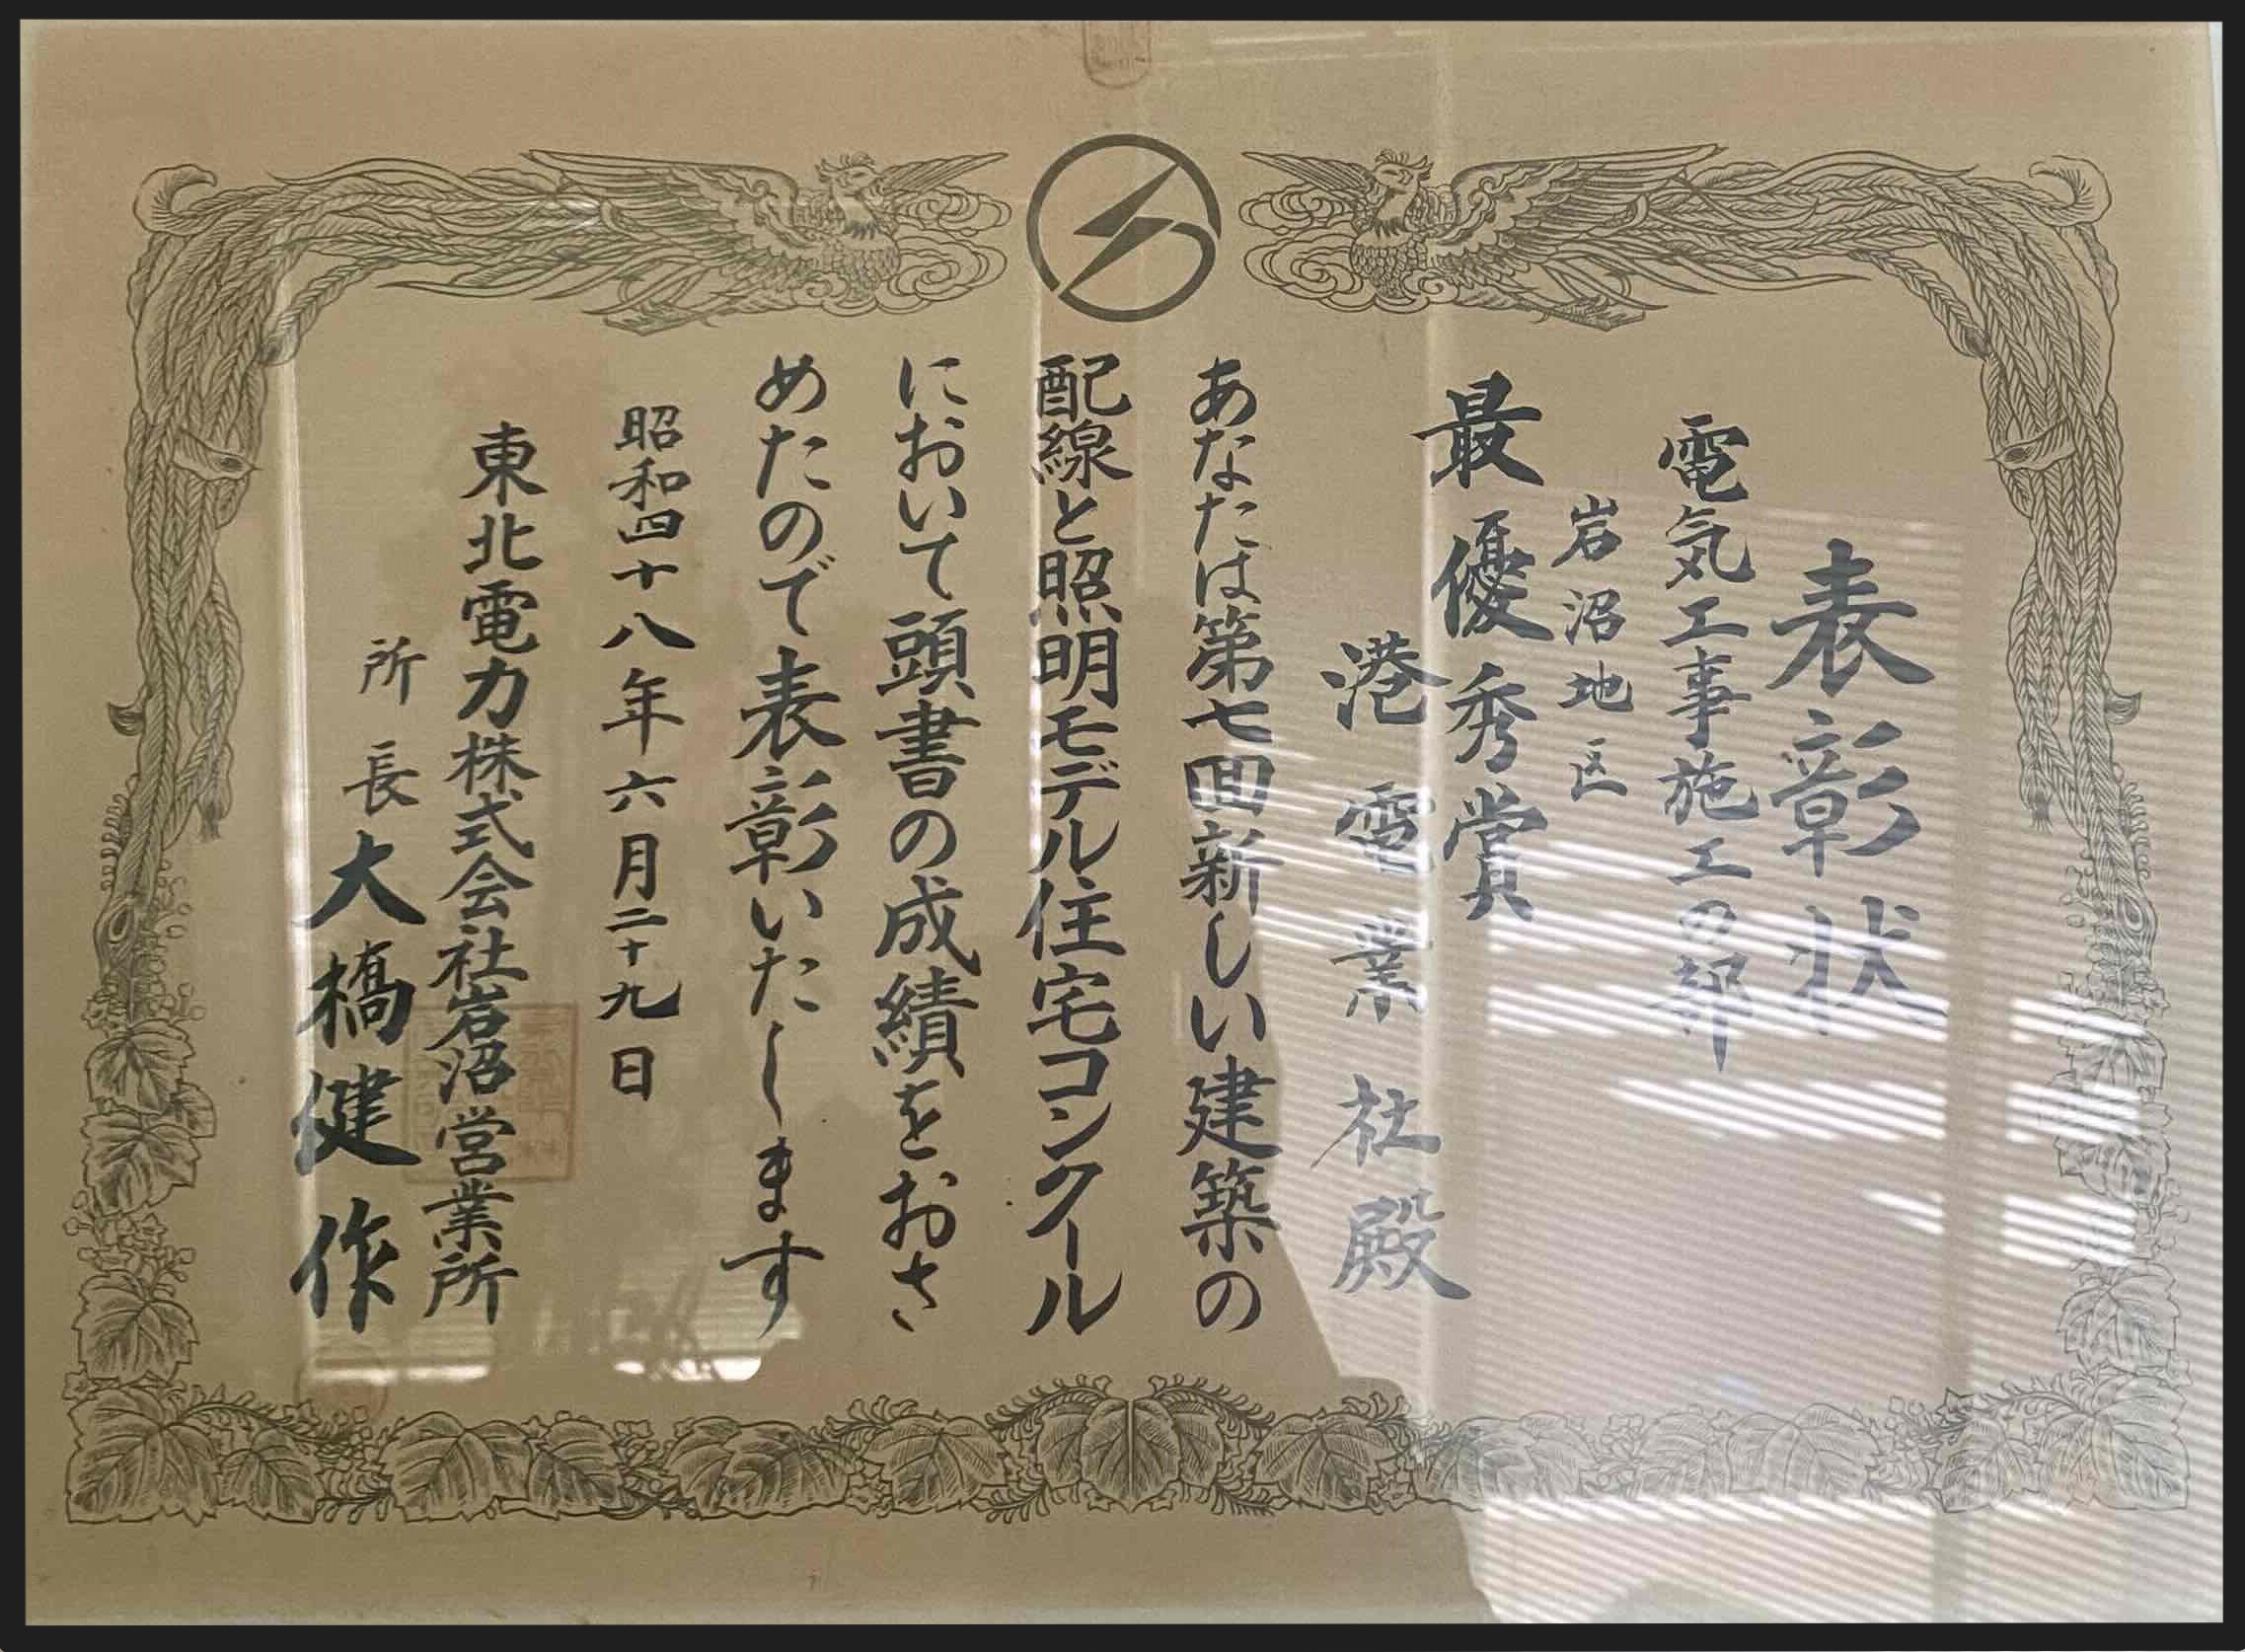 表彰状
電気工事施工の部
岩沼地区
最優秀賞
港電業社殿
あなたは第七回新しい建築の
配線と照明モデル住宅コンクール
において頭書の成績をおさ
めたので表彰いたします
昭和四十八年六月二十九日
東北電力株式会社岩沼営業所
所長大橋健作